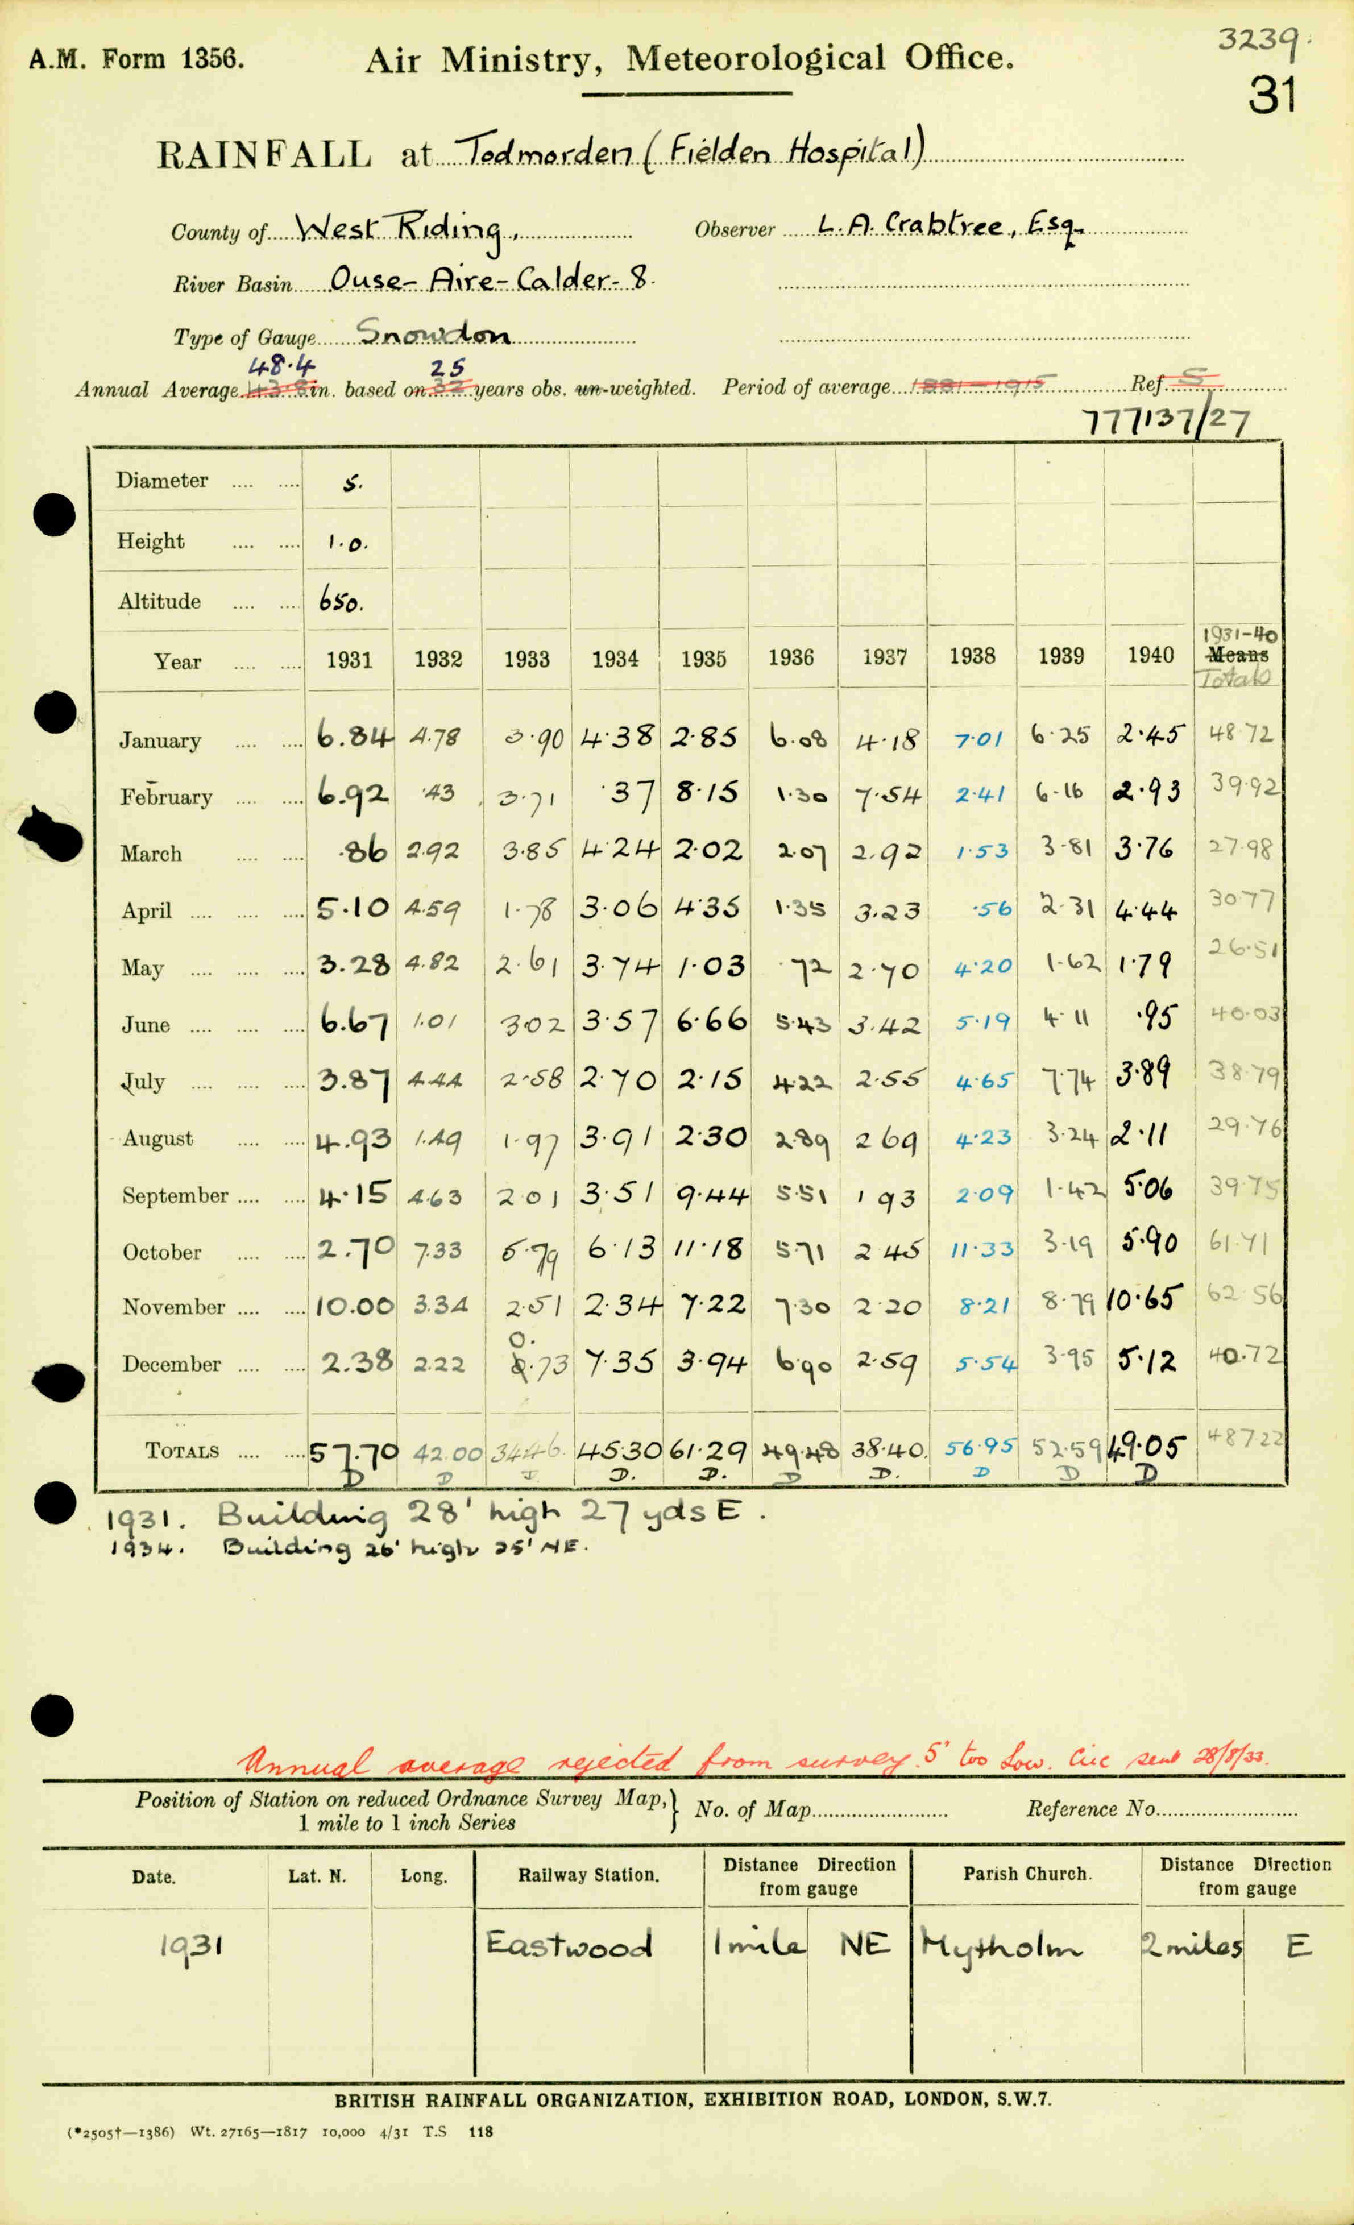 3239.
A.M. Form 1356.
Air Ministry, Meteorological Office.
31
RAINFALL at Todmorden (Fielden Hospital)
County of West Riding, Observer L.A. Crabtree, Esq.
River Basin Ouse-Aire-Calder-8.
Type of Gauge Snowdon
48.4 25
Annual Average 43.8 in. based on 32 years obs. un-weighted. Period of average 1881-1915 Ref. S
777137/27
Diameter 5.
Height 1.0.
Altitude 650.
1931-40
Year 1931 1932 1933 1934 1935 1936 1937 1938 1939 1940 Means
Totals
January 6.84 4.78 3.90 4.38 2.85 6.08 4.18 7.01 6.25 2.45 48.72
February 6.92 .43 3.71 .37 8.15 1.30 7.54 2.41 6.16 2.93 39.92
March .86 2.92 3.85 4.24 2.02 2.07 2.92 1.53 3.81 3.76 27.98
April 5.10 4.59 1.78 3.06 4.35 1.35 3.23 .56 2.31 4.44 30.77
May 3.28 4.82 2.61 3.74 1.03 .72 2.70 4.20 1.62 1.79 26.51
June 6.67 1.01 3.02 3.57 6.66 5.43 3.42 5.19 4.11 .95 40.03
July 3.87 4.44 2.58 2.70 2.15 4.22 2.55 4.65 7.74 3.89 38.79
August 4.93 1.49 1.97 3.91 2.30 2.89 2.69 4.23 3.24 2.11 29.76
September 4.15 4.63 2.01 3.51 9.44 5.51 1.93 2.09 1.42 5.06 39.75
October 2.70 7.33 5.79 6.13 11.18 5.71 2.45 11.33 3.19 5.90 61.71
November 10.00 3.34 2.51 2.34 7.22 7.30 2.20 8.21 8.79 10.65 62.56
December 2.38 2.22 0.73 7.35 3.94 6.90 2.59 5.54 3.95 5.12 40.72
TOTALS 57.70 42.00 34.46 45.30 61.29 49.48 38.40 56.95 52.59 49.05 487.22
D D D D. D. D D. D D D
1931. Building 28' high 27 yds E.
1934. Building 26' high 25' NE.
Annual average rejected from survey. 5" too Low. Circ sent 28/8/33.
Position of Station on reduced Ordnance Survey Map, } No. of Map Reference No.
1 mile to 1 inch Series
Date. Lat. N. Long. Railway Station. Distance Direction from gauge Parish Church. Distance Direction from gauge
1931 Eastwood 1 mile NE Mytholm 2 miles E
BRITISH RAINFALL ORGANIZATION, EXHIBITION ROAD, LONDON, S.W.7.
(*2505†—1386) Wt. 27165—1817 10,000 4/31 T.S 118